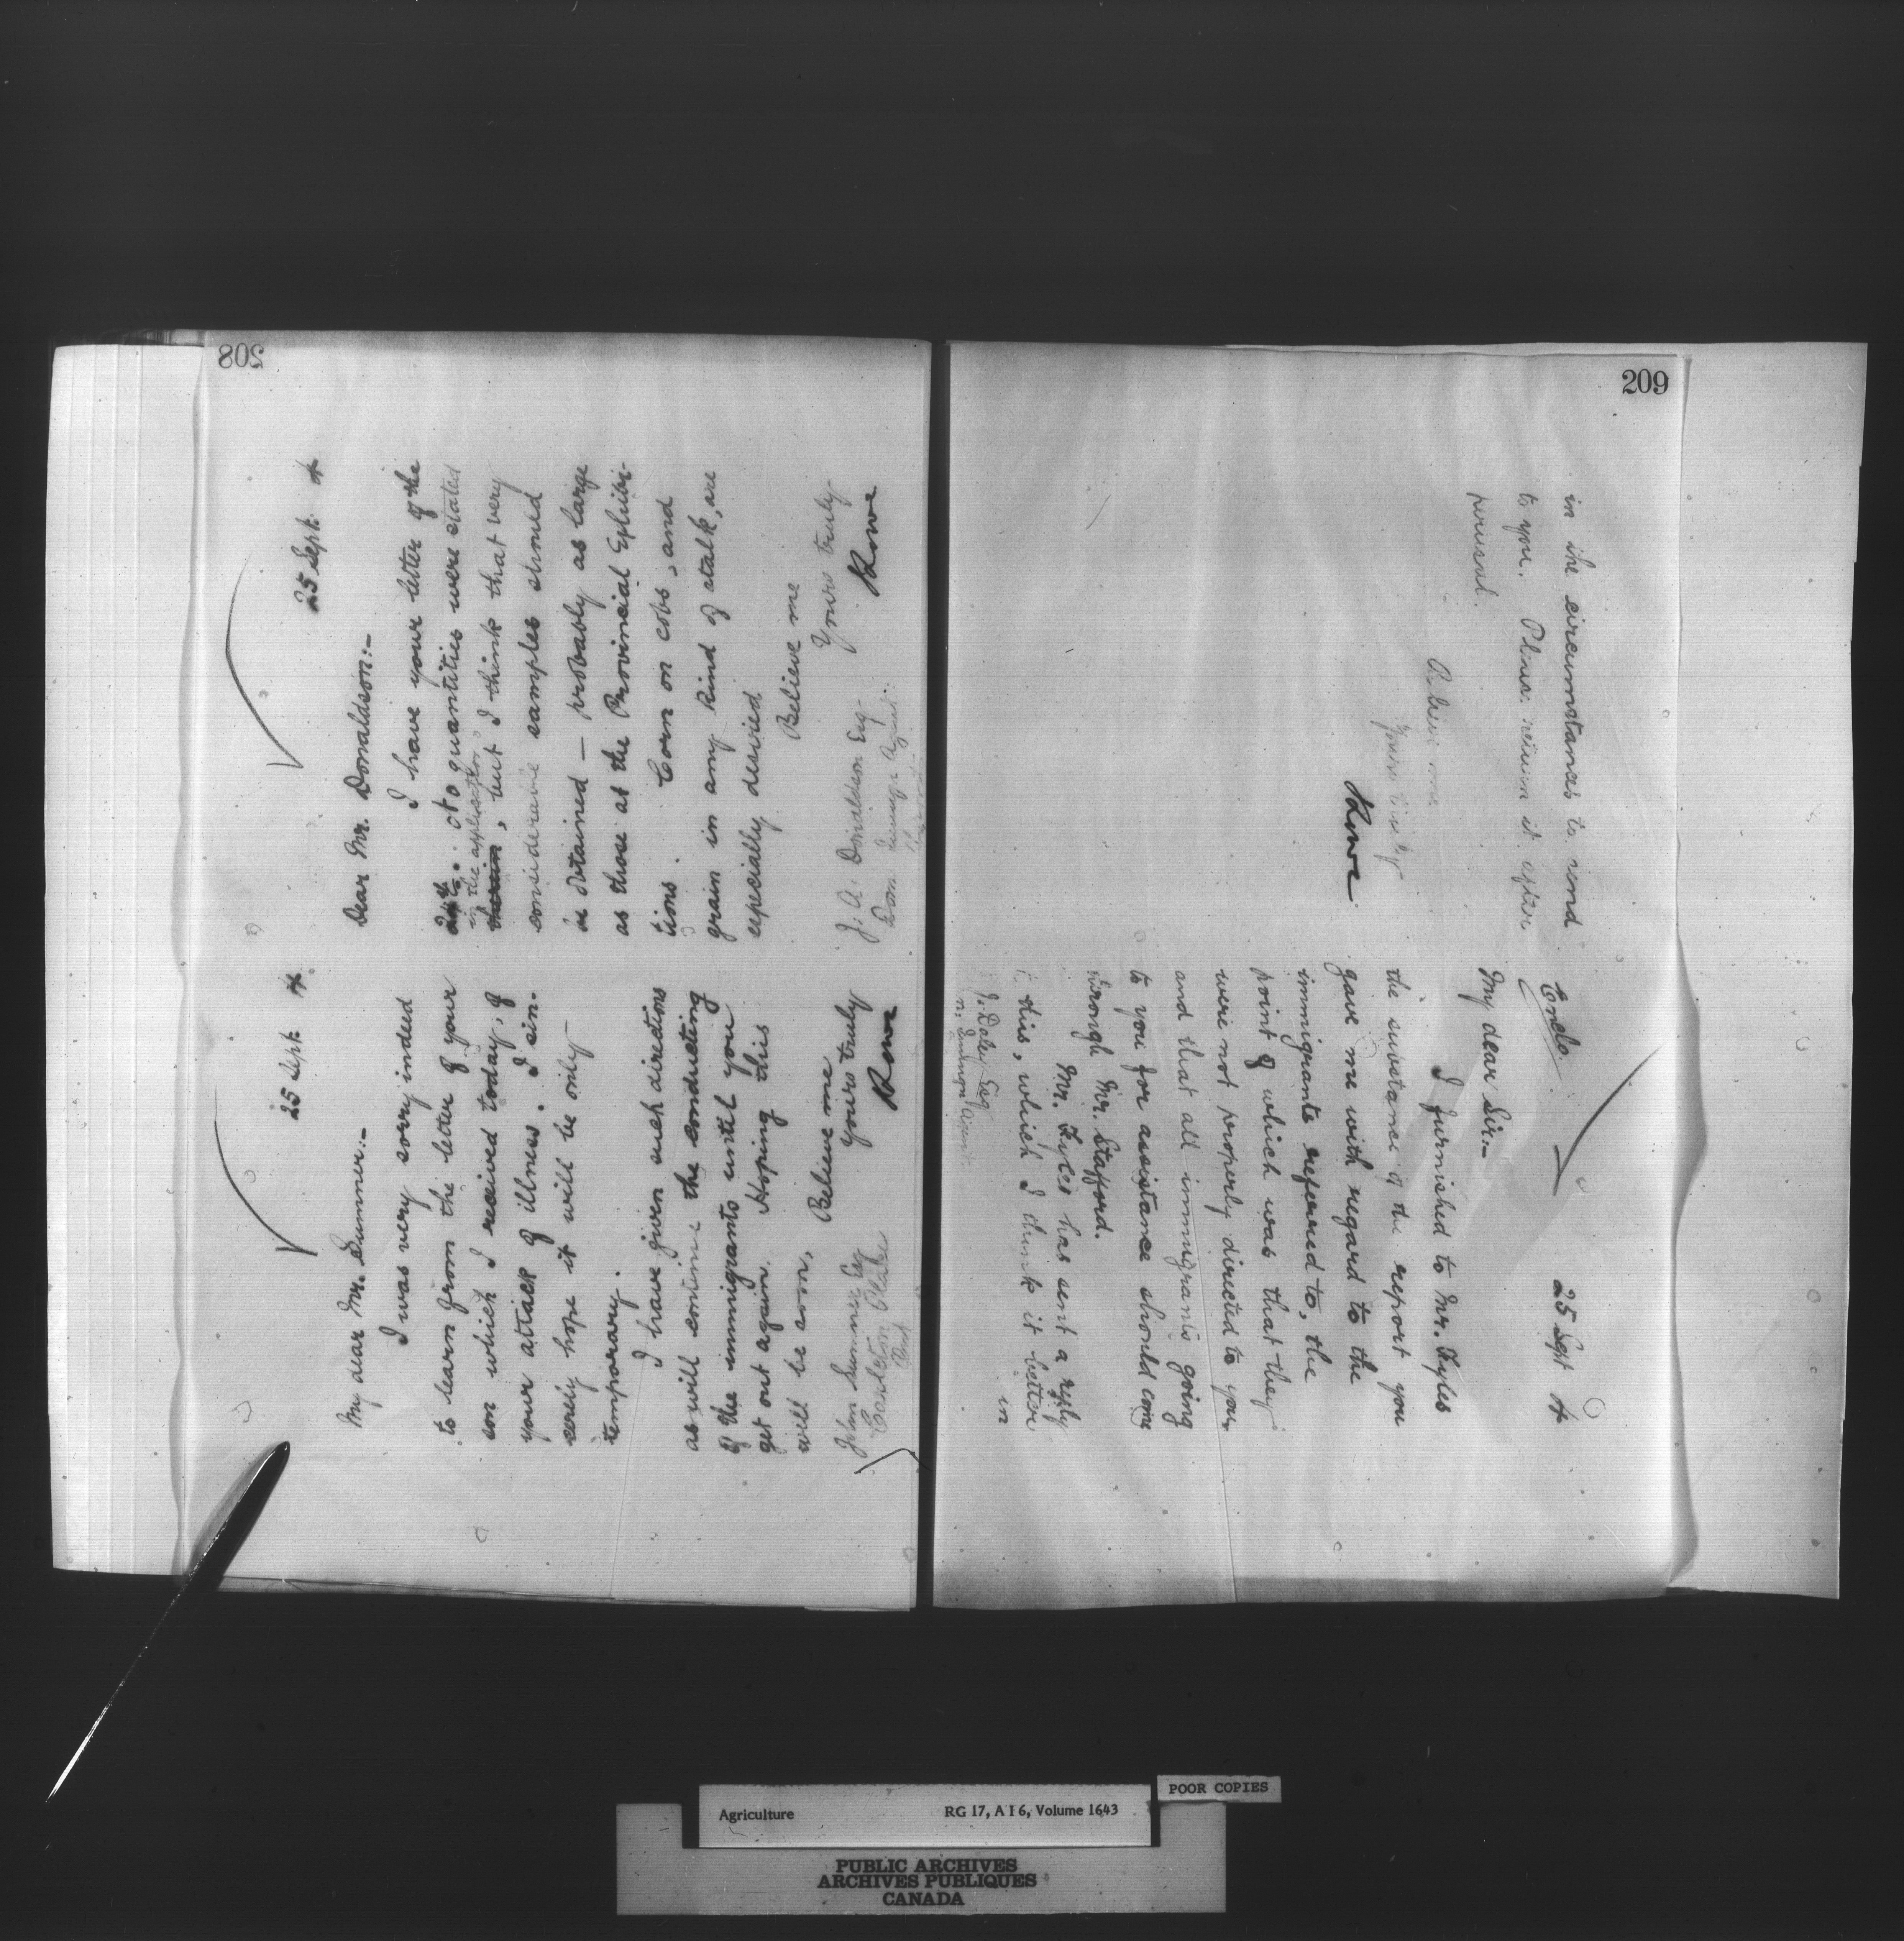 208
25 Sept. 4
My dear Mr. Sumner:-
I was very sorry indeed
to learn from the letter of your
son which I received today, of
your attack of illness. I sin-
cerely hope it will be only
temporary.
I have given such directions
as will continue the conducting
of the immigrants until you
get out again. Hoping this
will be soon,
Believe me
Yours truly
John Sumner Esq
Carleton Place
Ont
25 Sept. 4
Dear Mr. Donaldson:-
I have your letter of the
24th. No quantities were stated
in the application
therein, but I think that very
considerable samples should
be obtained — probably as large
as those at the Provincial Exhibi-
tions. Corn on cobs, and
grain in any kind of stalk, are
especially desired
Believe me
Yours truly
J. A. Donaldson Esq-
Dom. Immign. Agent.
209
Enclo. 25 Sept 4
My dear Sir:-
I furnished to Mr. Fyles
the substance of the report you
gave me with regard to the
immigrants referred to, the
point of which was that they
were not properly directed to you
and that all immigrants going
to you for assistance should come
through Mr. Stafford.
Mr. Fyles has sent a reply
to this, which I think it better
in
J. Daley Esq
in the circumstances to send
to you. Please return it after
perusal.
Believe me
Yours truly
Agriculture RG 17, A I 6, Volume 1643
POOR COPIES
PUBLIC ARCHIVES
ARCHIVES PUBLIQUES
CANADA